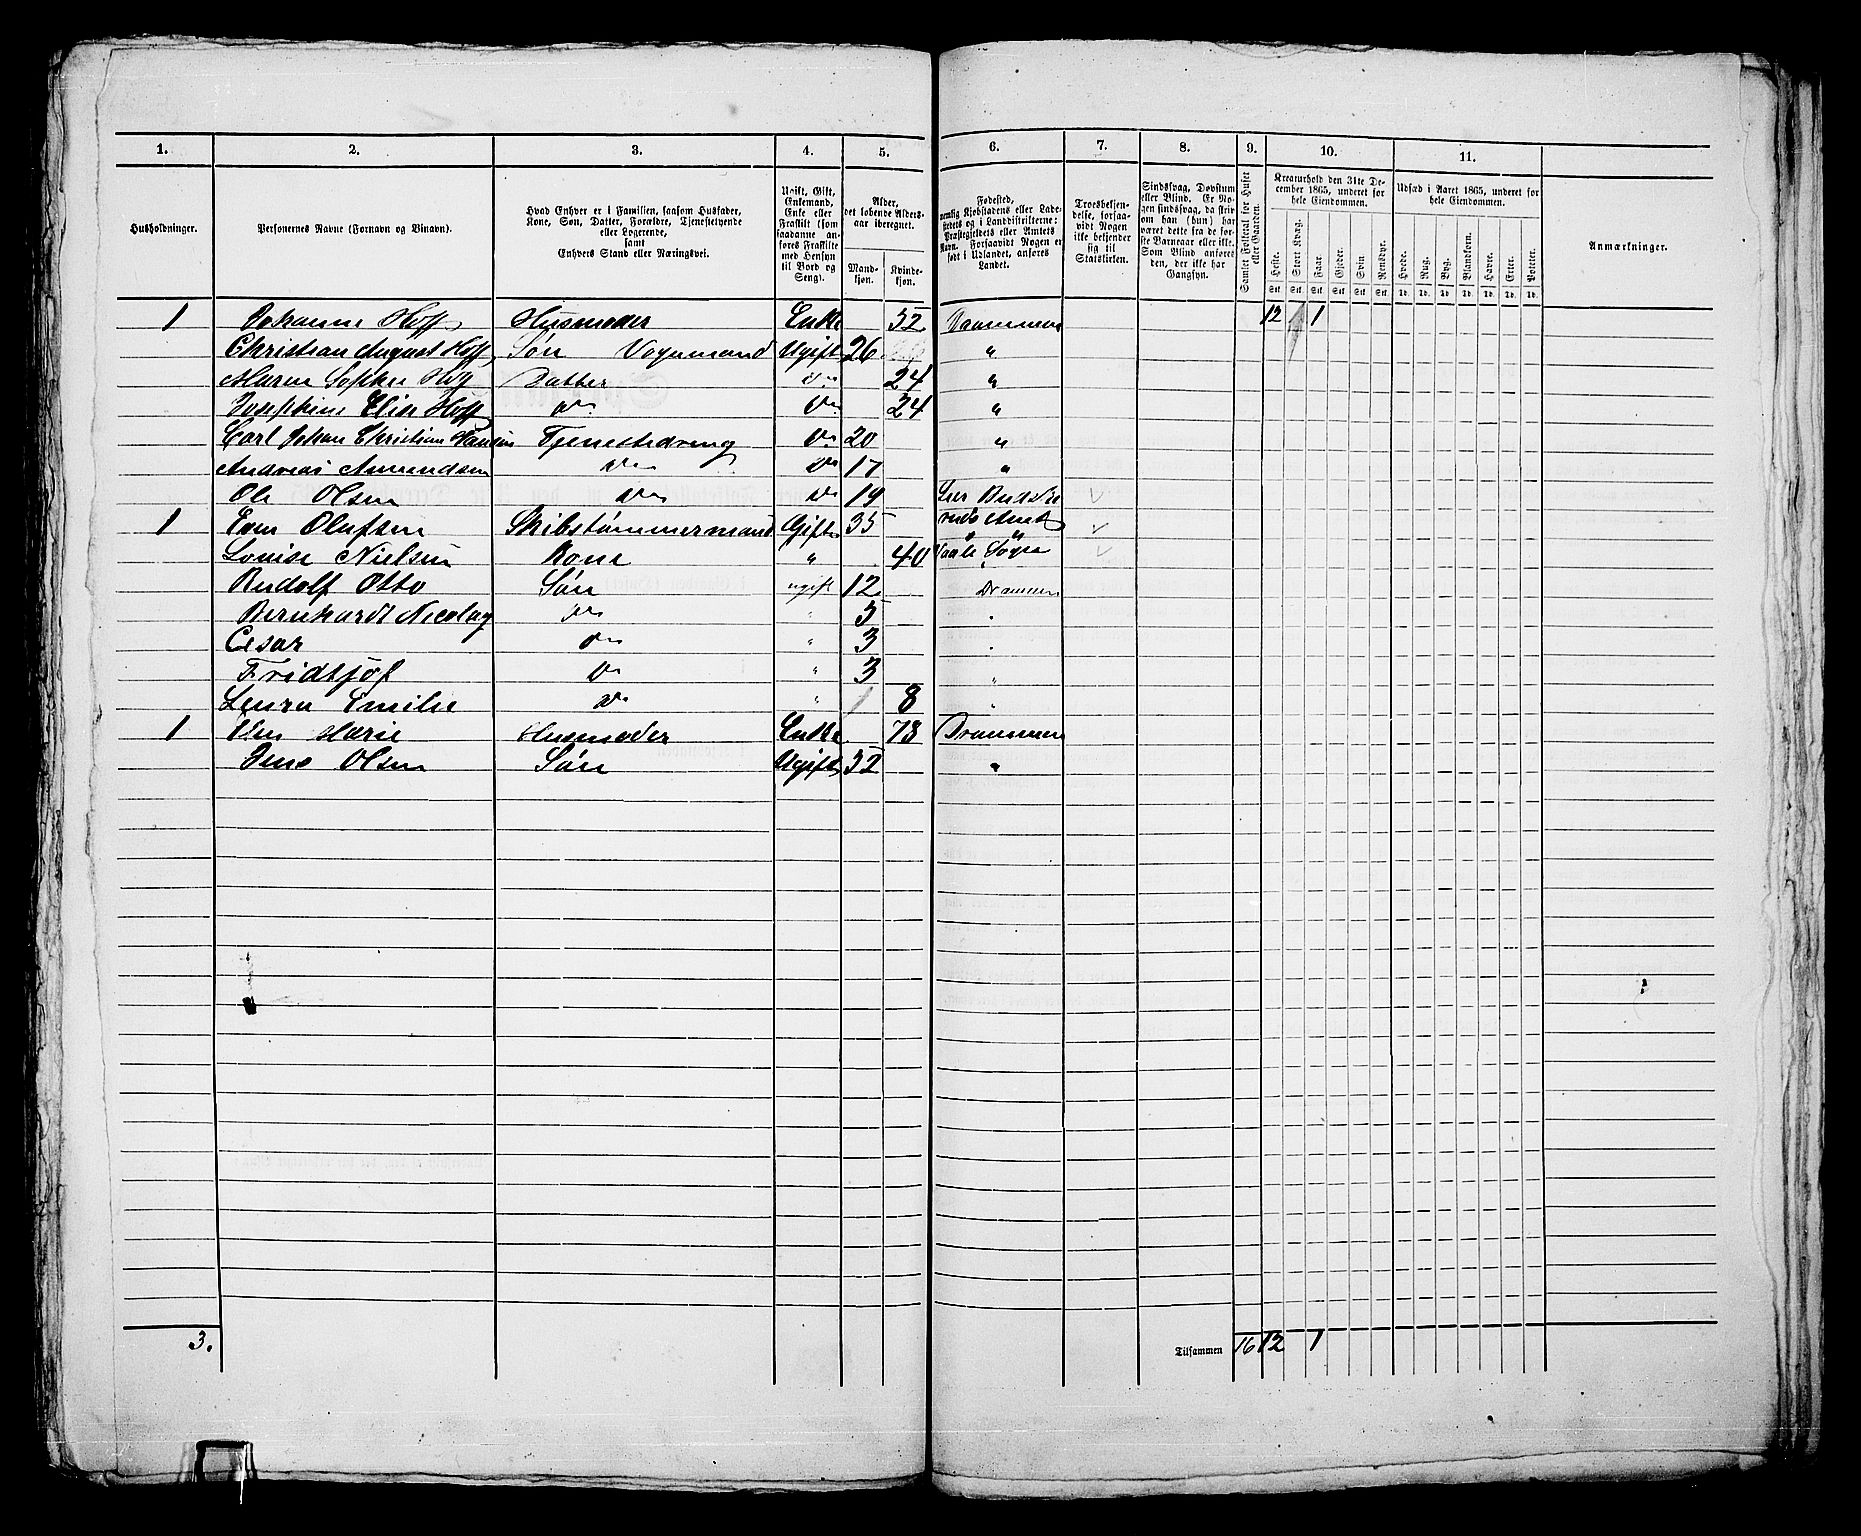 1. 2. 3. 4. 5. 6. 7. 8. 9. 10. 11.
Husholdninger.
Personernes Navne (Fornavn og Binavn).
Hvad Enhver er i Familien, saasom Husfader, Kone, Søn, Datter, Forældre, Tjenestetyende eller Logerende, samt Enhvers Stand eller Næringsvei.
Ugift, Gift, Enkemand, Enke eller Fraskilt (som saadanne anføres Fraskilte med Hensyn til Bord og Seng).
Alder, det løbende Aldersaar iberegnet.
Mandkjøn. Kvindekjøn.
Fødested, nemlig Kjøbstadens eller Ladestedets og i Landdistrikterne: Præstegjeldets eller Amtets Navn. Forsaavidt Nogen er født i Udlandet, anføres Landet.
Troesbekjendelse, forsaavidt Nogen ikke bekjender sig til Statskirken.
Sindssvag, Døvstum eller Blind. Er Nogen sindssvag, da skriv om han (hun) har været dette fra de første Barneaar eller ikke. Som Blind anføres den, der ikke har Gangsyn.
Samlet Folketal for Huset eller Gaarden.
Kreaturhold den 31te December 1865, underet for hele Eiendommen.
Heste. Stort Kvæg. Faar. Gjeder. Svin. Rensdyr.
Stk. Stk. Stk. Stk. Stk. Stk.
Udsæd i Aaret 1865, underet for hele Eiendommen.
Hvede. Rug. Byg. Blandkorn. Havre. Erter. Poteter.
Td. Td. Td. Td. Td. Td. Td.
Anmærkninger.
1 Johanne Hoff Husmoder Enke 52 Drammen 12 1
Christian August Hoff Søn Vognmand Ugift 26 "
Maren Sophie Hoff Datter Do 24 "
Josephine Elise Hoff Do Do 24 "
Carl Johan Christian Hansen Tjenestedreng Do 20 "
Andreas Amundsen Do Do 17 "
Ole Olsen Do Do 19 Lier Buske
1 Even Olufsen Skibstømmermand Gift 35 ruds Amt
Lovise Nielsen Kone " 40 Vaale Sogn
Rudolf Otto Søn ugift 12 Drammen
Bernhardt Nicolay Do " 5 "
Cesar Do " 3 "
Fridtjof Do " 3 "
Laura Emilie Do " 8 "
1 Marie Husmoder Enke 78 Drammen
Jens Olsen Søn Ugift 52 "
3. Tilsammen 16 12 1